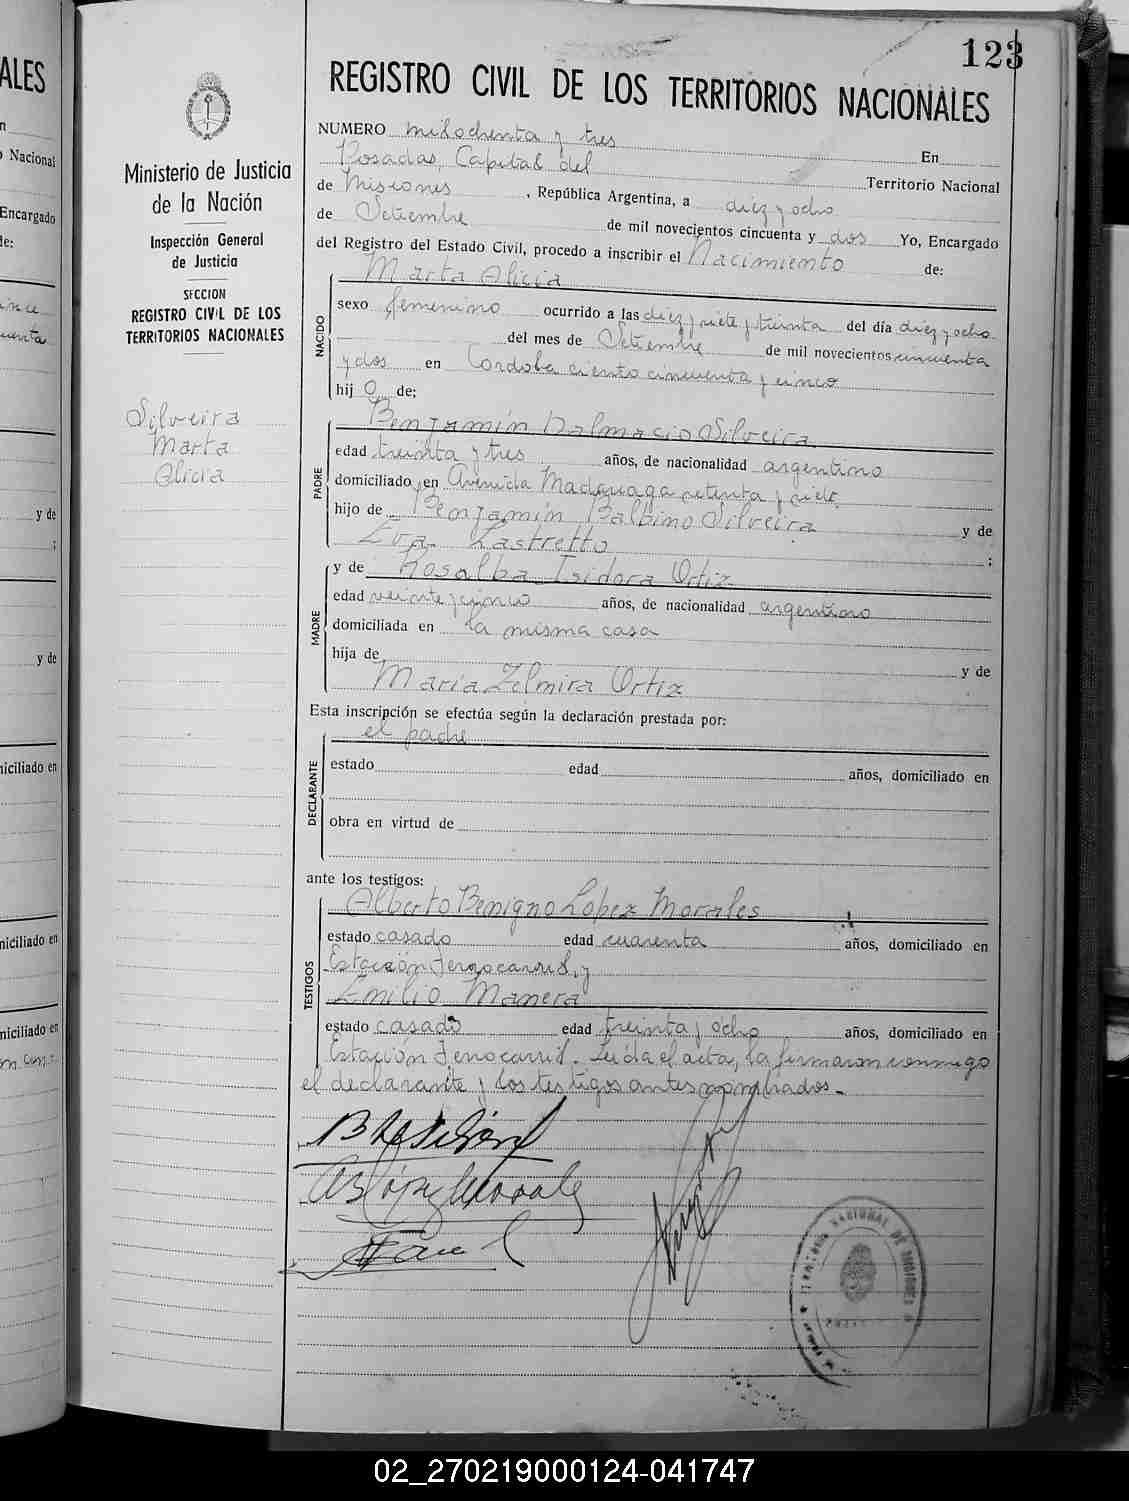 123
REGISTRO CIVIL DE LOS TERRITORIOS NACIONALES
Ministerio de Justicia
de la Nación
Inspección General
de Justicia
SECCION
REGISTRO CIVIL DE LOS
TERRITORIOS NACIONALES
Silveira
Marta
Alicia
NUMERO mil ochenta y tres En
Posadas, Capital del Territorio Nacional
de Misiones, República Argentina, a diez y ocho
de Setiembre de mil novecientos cincuenta y dos Yo, Encargado
del Registro del Estado Civil, procedo a inscribir el Nacimiento de:
Marta Alicia
NACIDO
sexo femenino ocurrido a las diez y siete y treinta del día diez y ocho
del mes de Setiembre de mil novecientos cincuenta
y dos en Cordoba ciento cincuenta y cinco
hij a de:
PADRE
Benjamín Dalmacio Silveira
edad treinta y tres años, de nacionalidad argentino
domiciliado en Avenida setenta y siete
hijo de Benjamín Balbino Silveira y de
Eva Lastretto ;
MADRE
y de Rosalba Isidora Ortiz
edad veinte y cinco años, de nacionalidad argentino
domiciliada en la misma casa
hija de y de
María Zelmira Ortiz
Esta inscripción se efectúa según la declaración prestada por:
el padre
DECLARANTE
estado edad años, domiciliado en
obra en virtud de
ante los testigos:
TESTIGOS
Alberto Benigno Lopez Morales
estado casado edad cuarenta años, domiciliado en
Estación Ferrocarril, y
Emilio Manera
estado casado edad treinta y ocho años, domiciliado en
Estación Ferrocarril. Leída el acta, la firmaron conmigo
el declarante y los testigos antes nombrados.-
AB López Morales
ALES
Nacional
Encargado
de:
y de
;
y de
miciliado en
niciliado en
niciliado en
02_270219000124-041747